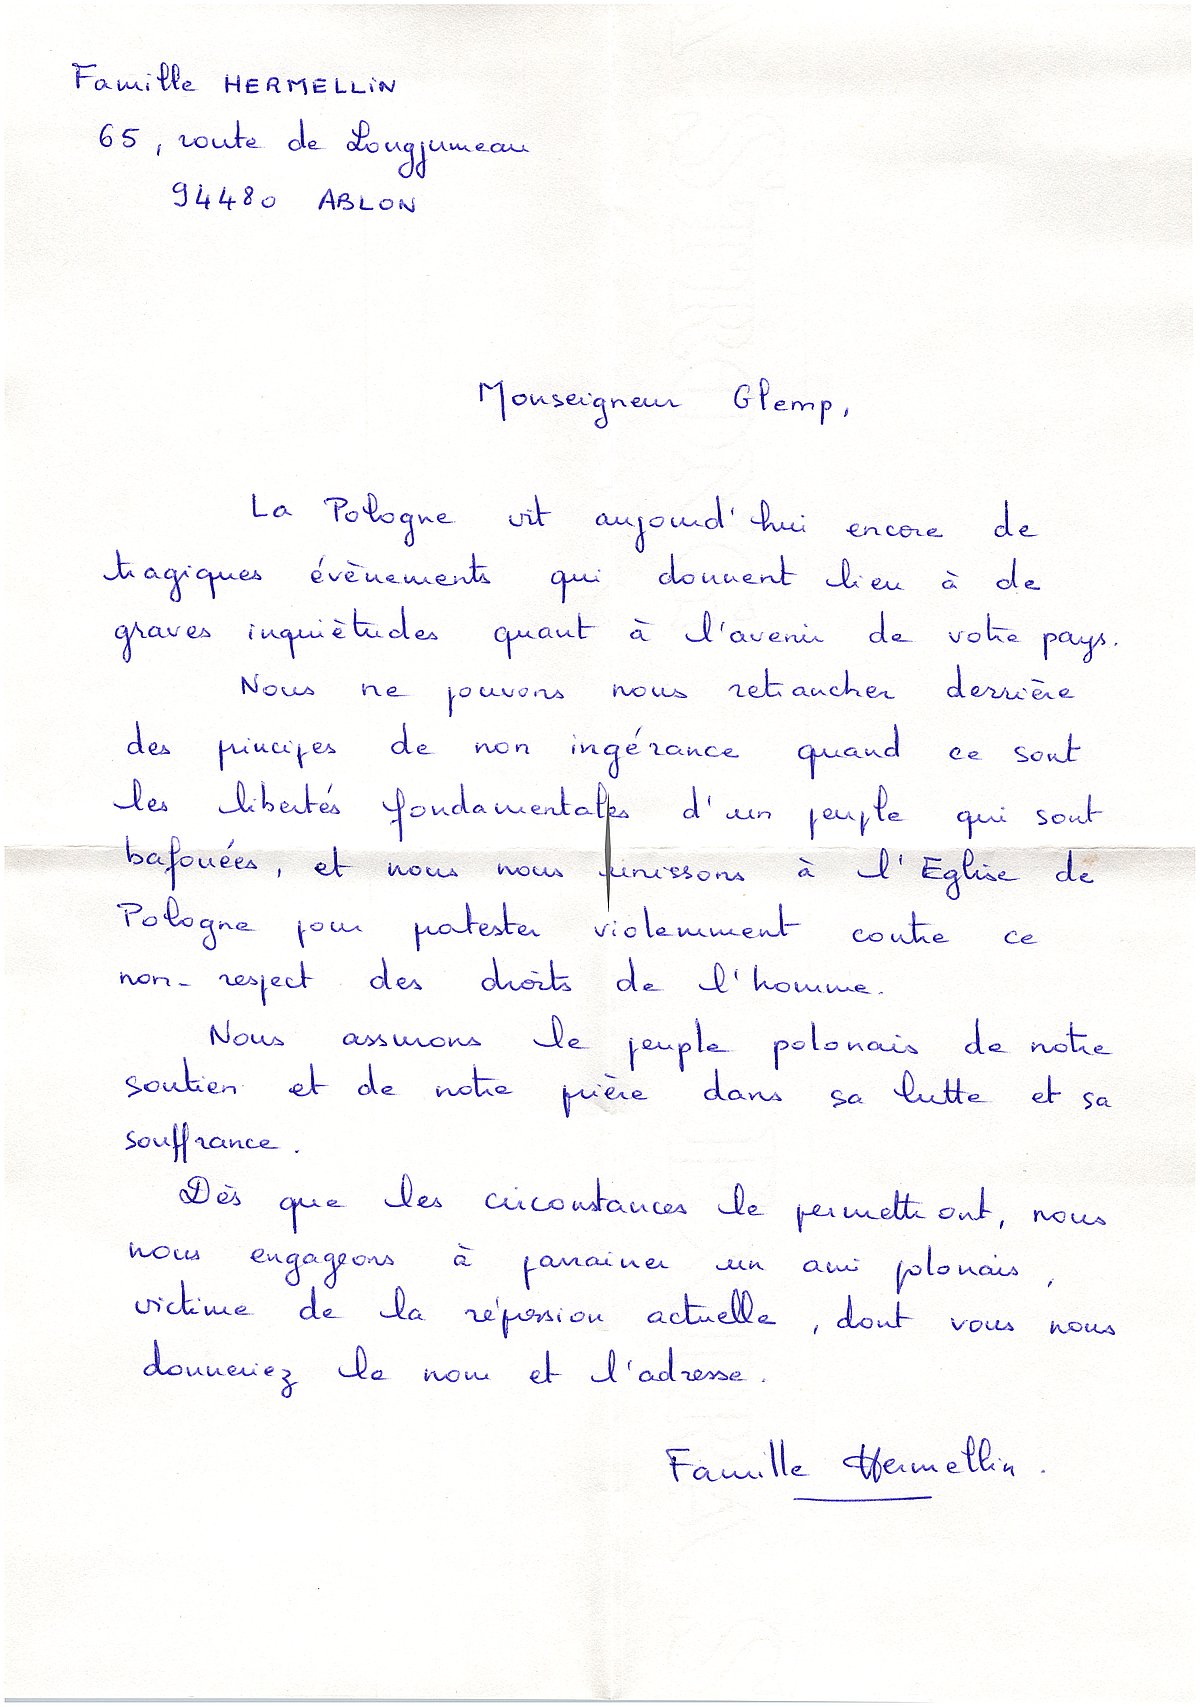 Famille HERMELLIN
65, route de Longjumeau
94480 ABLON
Monseigneur Glemp,
La Pologne vit aujourd'hui encore de
tragiques évènements qui donnent lieu à de
graves inquiètudes quant à l'avenir de votre pays.
Nous ne pouvons nous retrancher derrière
des principes de non ingérance quand ce sont
les libertés fondamentales d'un peuple qui sont
bafouées, et nous nous unissons à l'Eglise de
Pologne pour protester violemment contre ce
non-respect des droits de l'homme.
Nous assurons le peuple polonais de notre
soutien et de notre prière dans sa lutte et sa
souffrance.
Dès que les circonstances le permettront, nous
nous engageons à parrainer un ami polonais,
victime de la répression actuelle, dont vous nous
donneriez le nom et l'adresse.
Famille Hermellin.